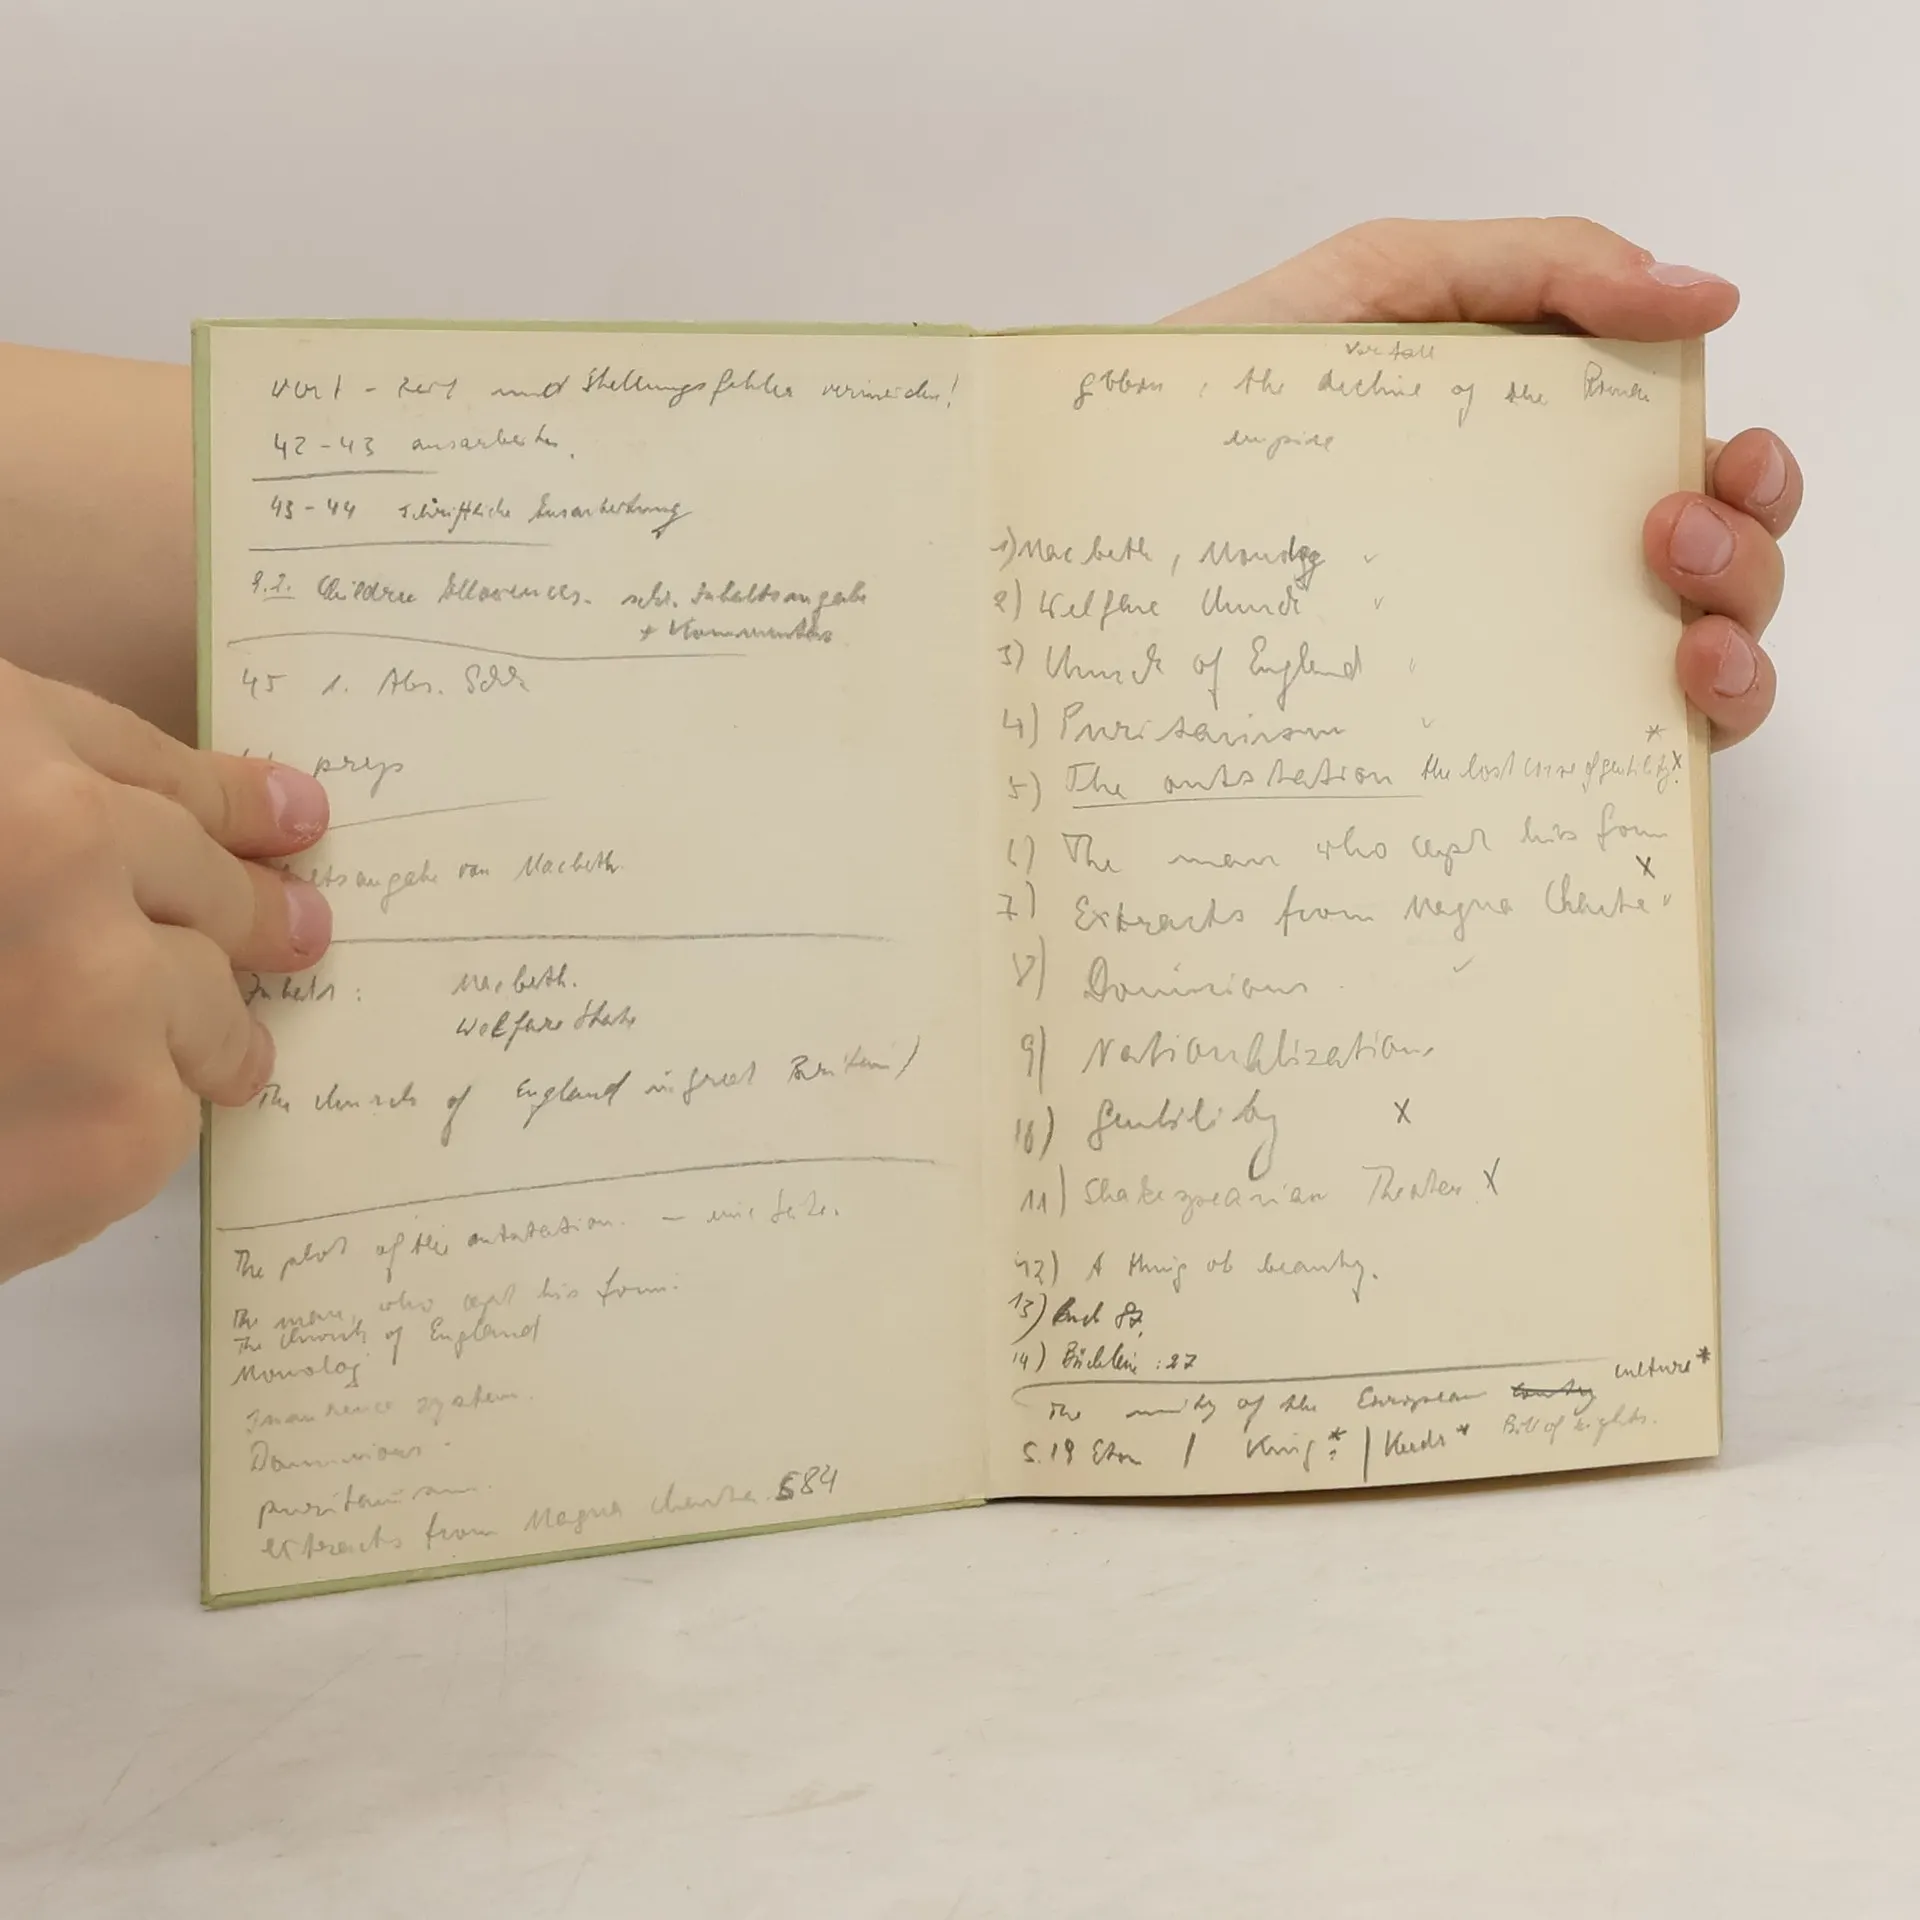 Wort - Zeit und Stellungsfehler vermeiden!
42-43 ausarbeiten.
43-44 schriftliche Ausarbeitung
9.2. Children Allowences. schr. Inhaltsangabe
+ Kommentar
45 1. Abs. Schr
preps
ltsangabe von Macbeth.
Inhalt: Macbeth.
Welfare State
The church of England in great Britain)
The plot of the outstation. - eine Seite.
The man, who kept his form.
The church of England
Monolog
Insurence system.
Dominions.
puritanism.
extracts from Magna Charta. 584
Verfall
gibbon, the decline of the Roman
empire
1) Macbeth, Monolog
2) Welfare
3) Church of England
4) Puritanism
5) The outstation the lost of gentility x
6) The man who kept his form
7) Extracts from Magna Charta x
8) Dominions
9) Nationalization
10) Gentility x
11) Shakespearian Theater. x
12) A thing of beauty.
13) Buch 87.
14) Büchlein : 27
The unity of the European culture *
S. 19 Eton / King * / Keats * Bill of rights.